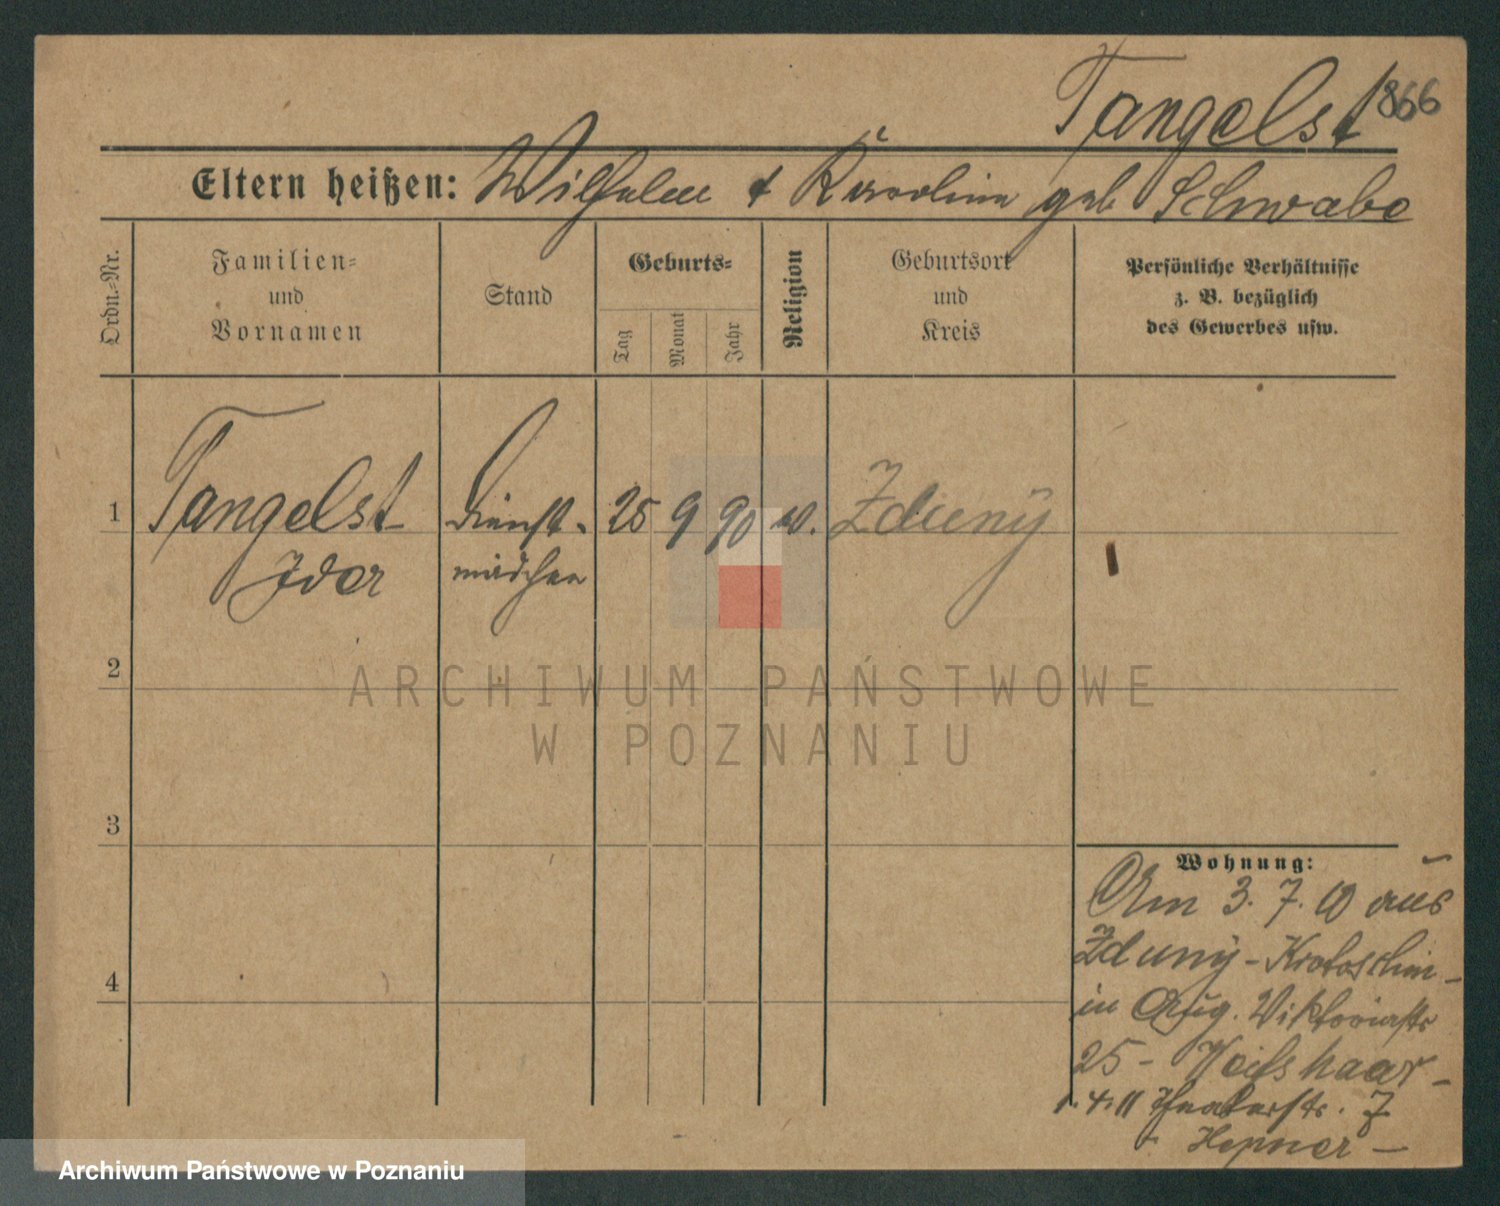 Tangelst 866
Eltern heißen: Wilhelm & Karoline geb Schwabe
Ordn.=Nr.
Familien=
und
Vornamen
Stand
Geburts=
Tag
Monat
Jahr
Religion
Geburtsort
und
Kreis
Persönliche Verhältnisse
z. B. bezüglich
des Gewerbes usw.
1 Tangelst Dienst- 25 9 90 Zduny
Ida mädchen
2
3
4
Wohnung:
Am 3. 7. 10 aus
Zduny - Krotoschin -
in Aug. Viktoriastr
25 -
1. 4. 11 Theaterstr. 7
Hepner -
ARCHIWUM PAŃSTWOWE
W POZNANIU
Archiwum Państwowe w Poznaniu